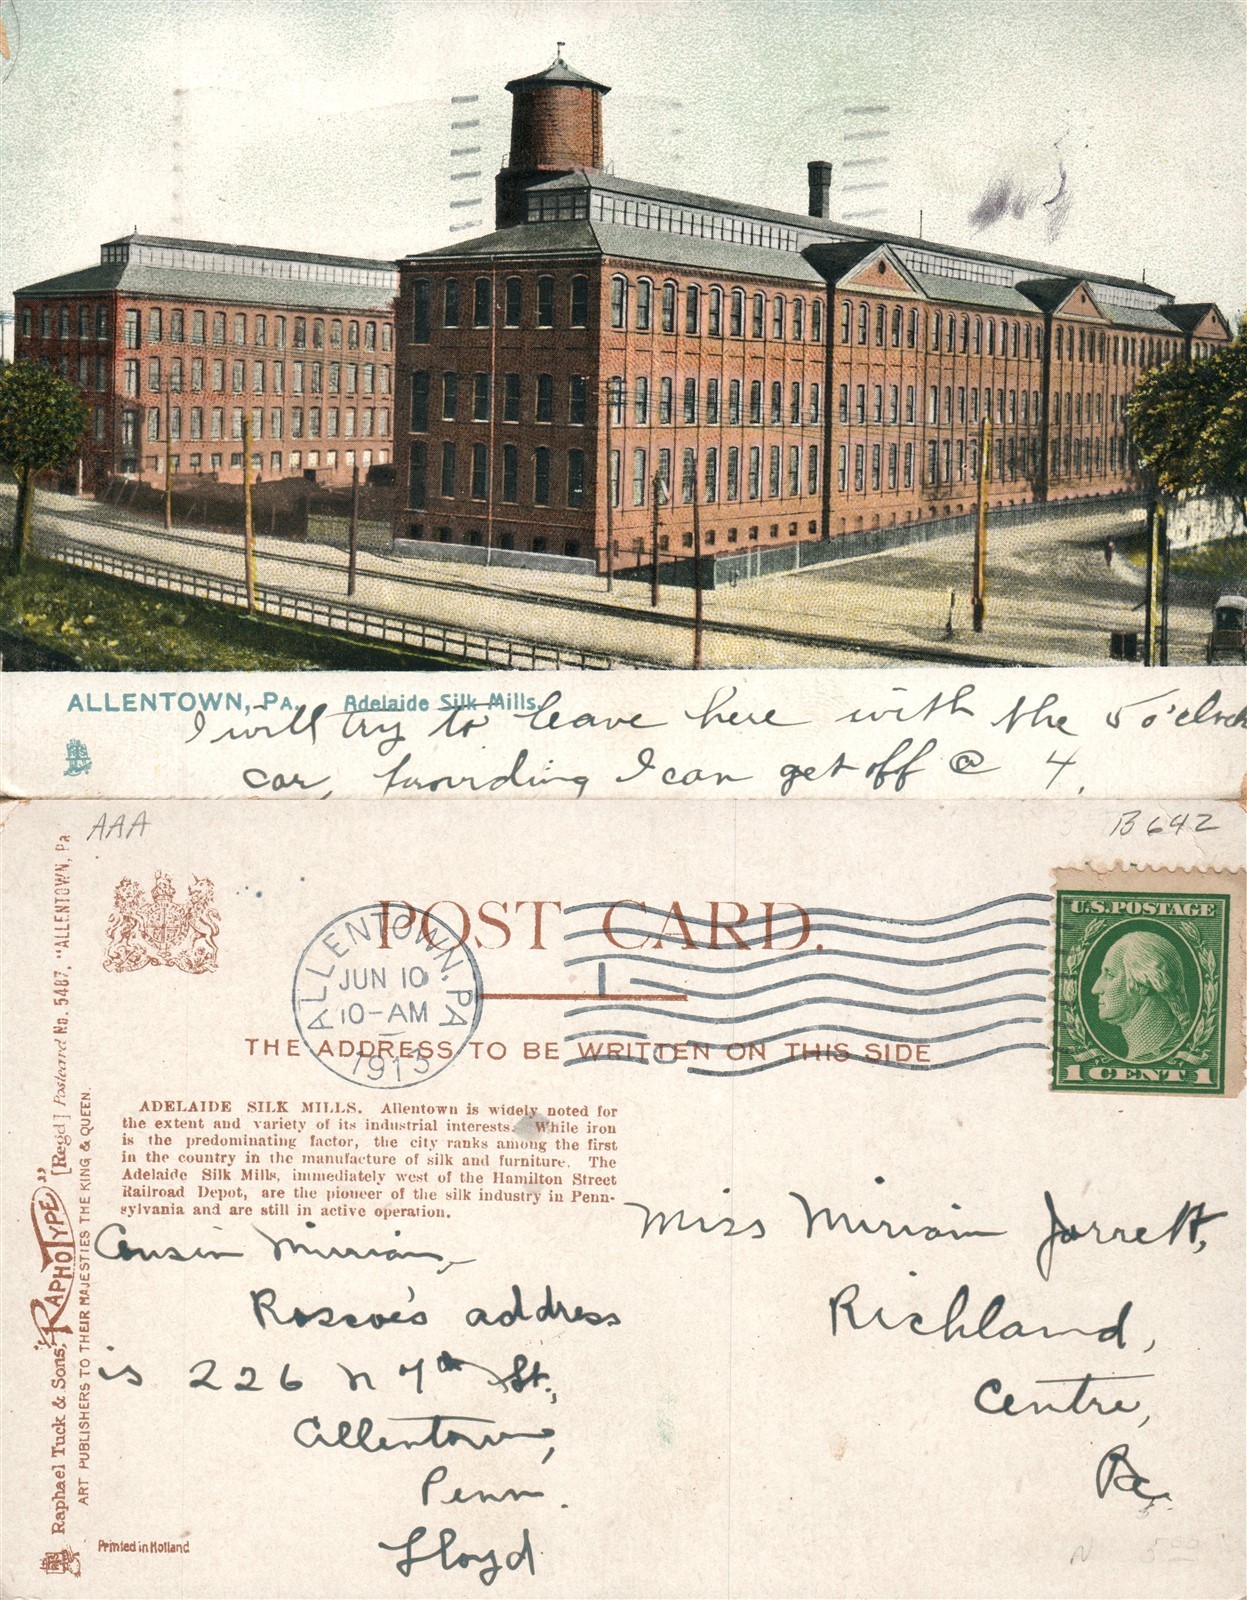 ALLENTOWN, PA. Adelaide Silk Mills.
I will try to leave here with the 5 o'clock
car, providing I can get off @ 4.
AAA
B642
POST CARD.
ALLENTOWN, PA
JUN 10
10-AM
1913
U.S. POSTAGE
1 CENT 1
THE ADDRESS TO BE WRITTEN ON THIS SIDE
ADELAIDE SILK MILLS. Allentown is widely noted for
the extent and variety of its industrial interests. While iron
is the predominating factor, the city ranks among the first
in the country in the manufacture of silk and furniture. The
Adelaide Silk Mills, immediately west of the Hamilton Street
Railroad Depot, are the pioneer of the silk industry in Penn-
sylvania and are still in active operation.
Cousin Miriam,
Roscoe's address
is 226 N 7th St.,
Allentown,
Penn.
Lloyd
Miss Miriam Jarrett,
Richland,
Centre,
Pa.
Raphael Tuck & Sons' "RAPHOTYPE" [Regd] Postcard No. 5487. "ALLENTOWN, Pa
ART PUBLISHERS TO THEIR MAJESTIES THE KING & QUEEN.
Printed in Holland
N 5.00